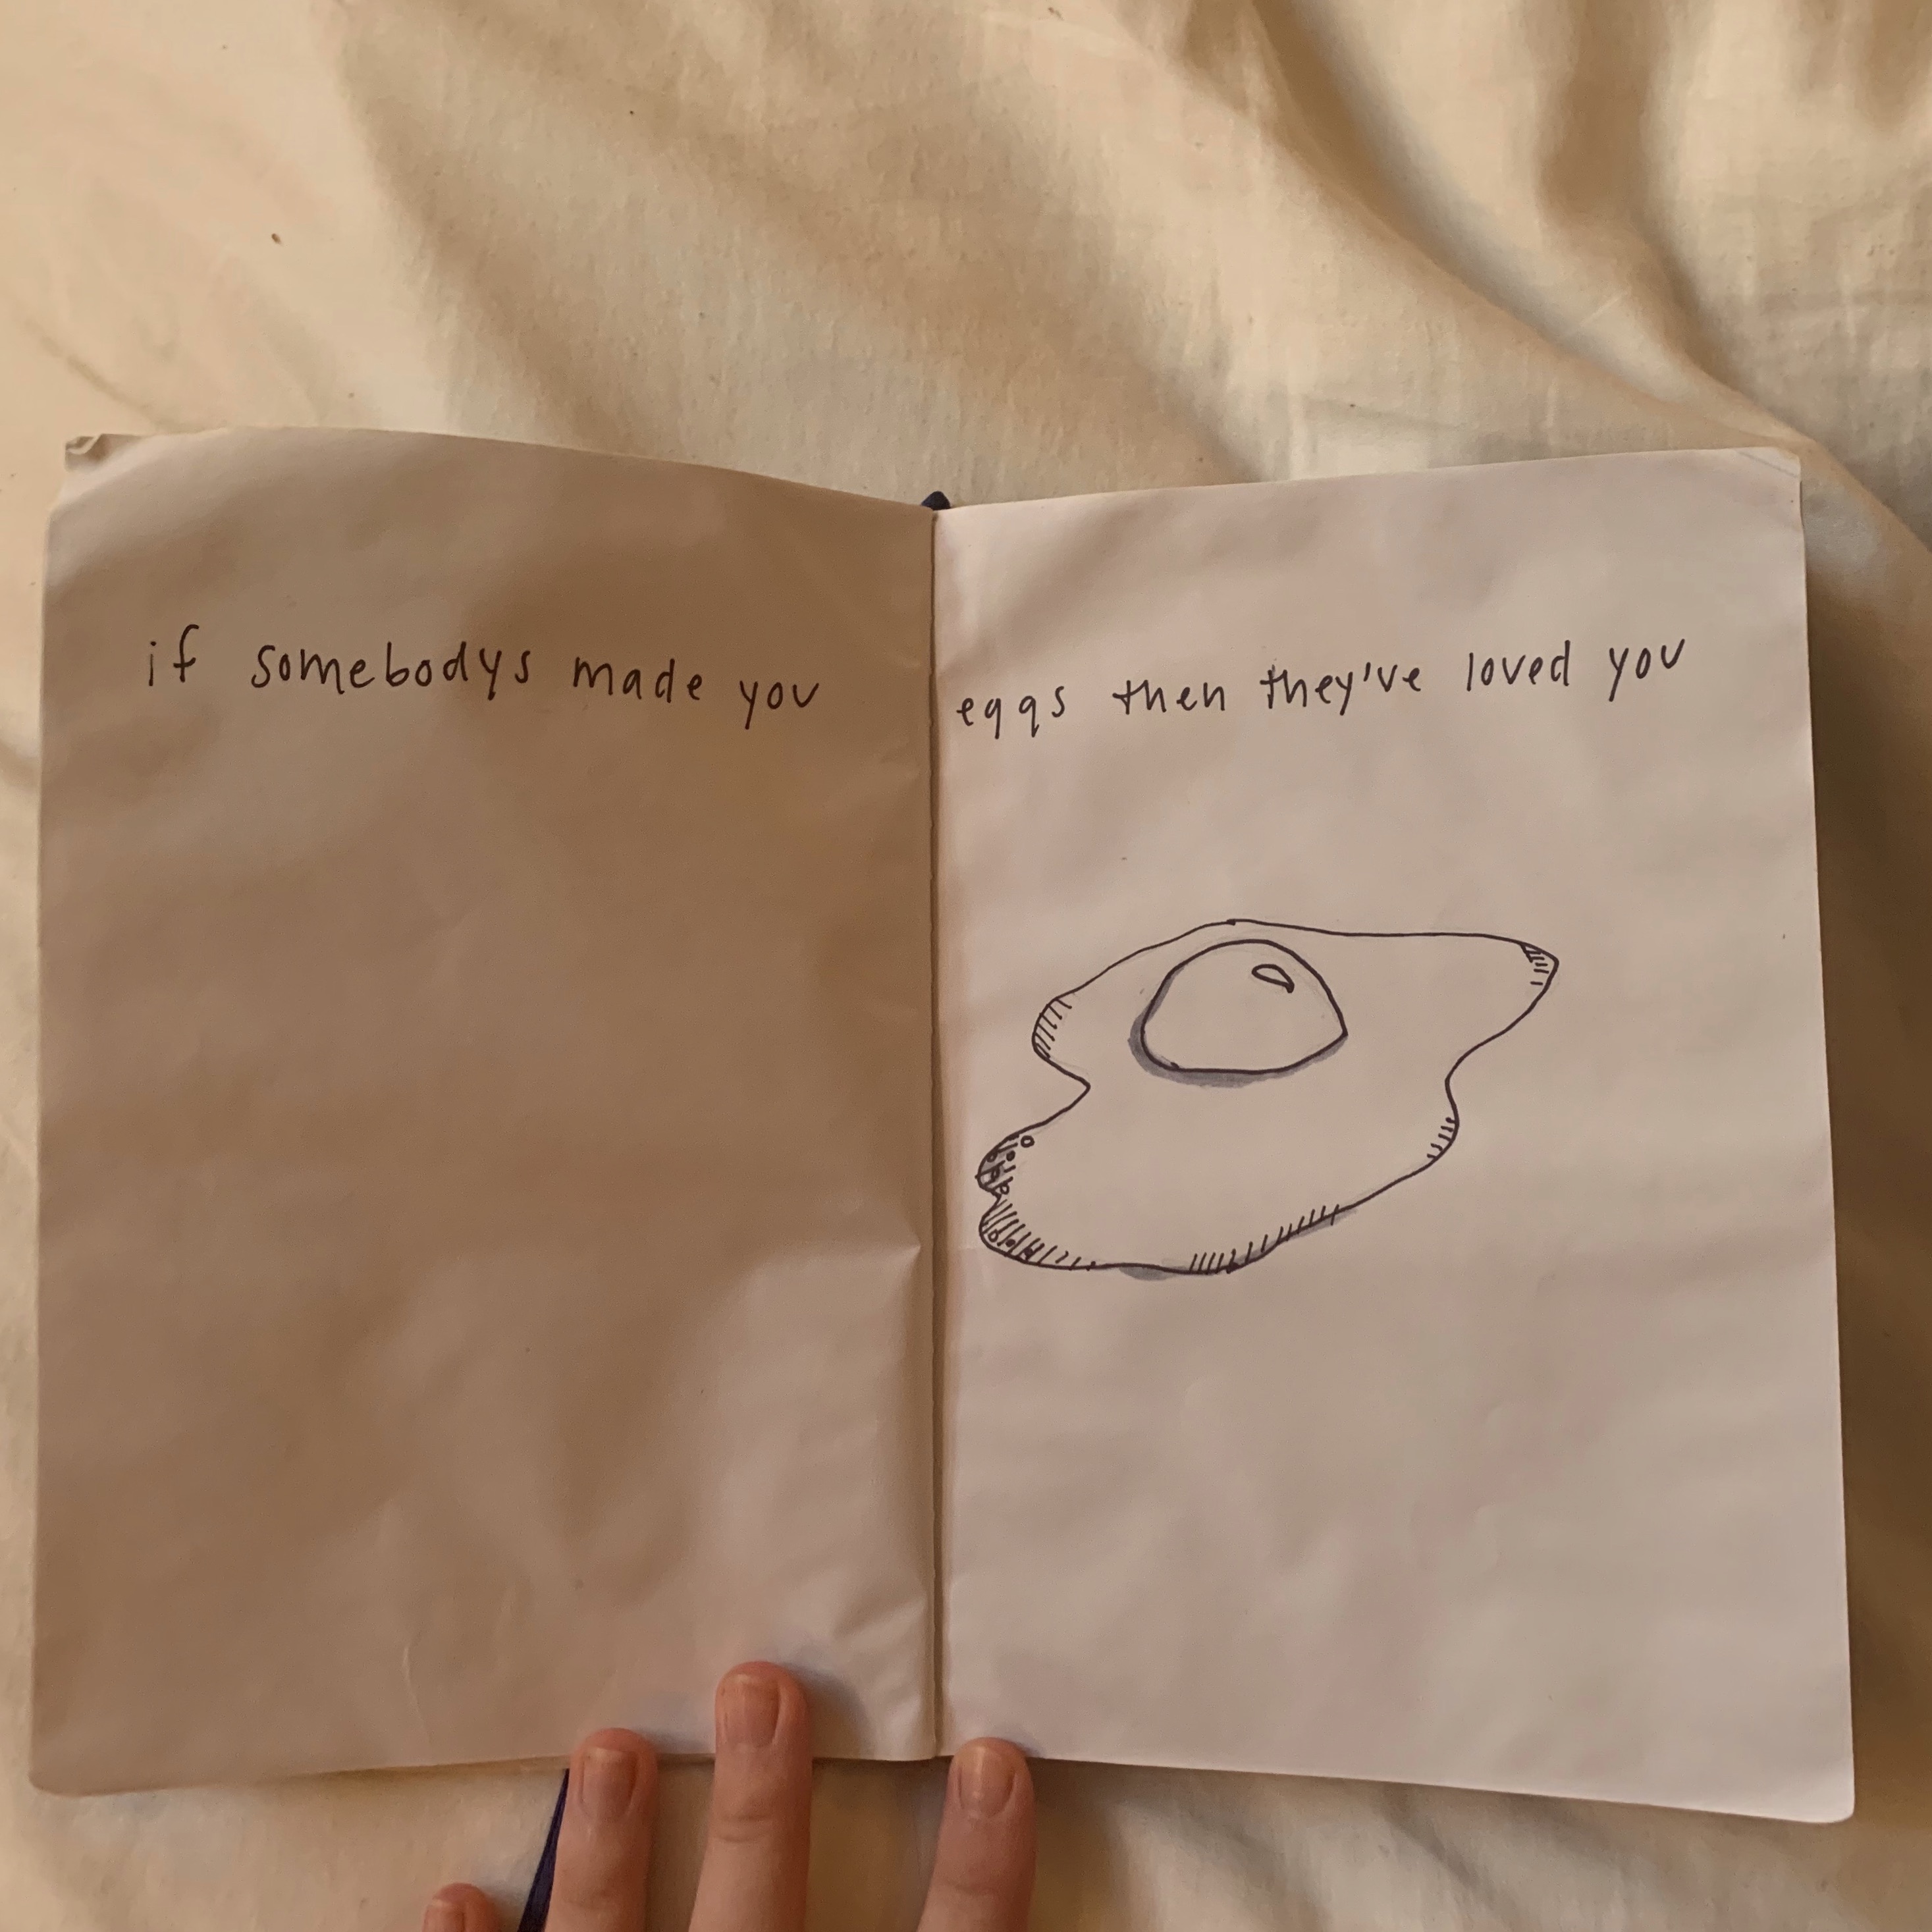 if somebodys made you eggs then they've loved you